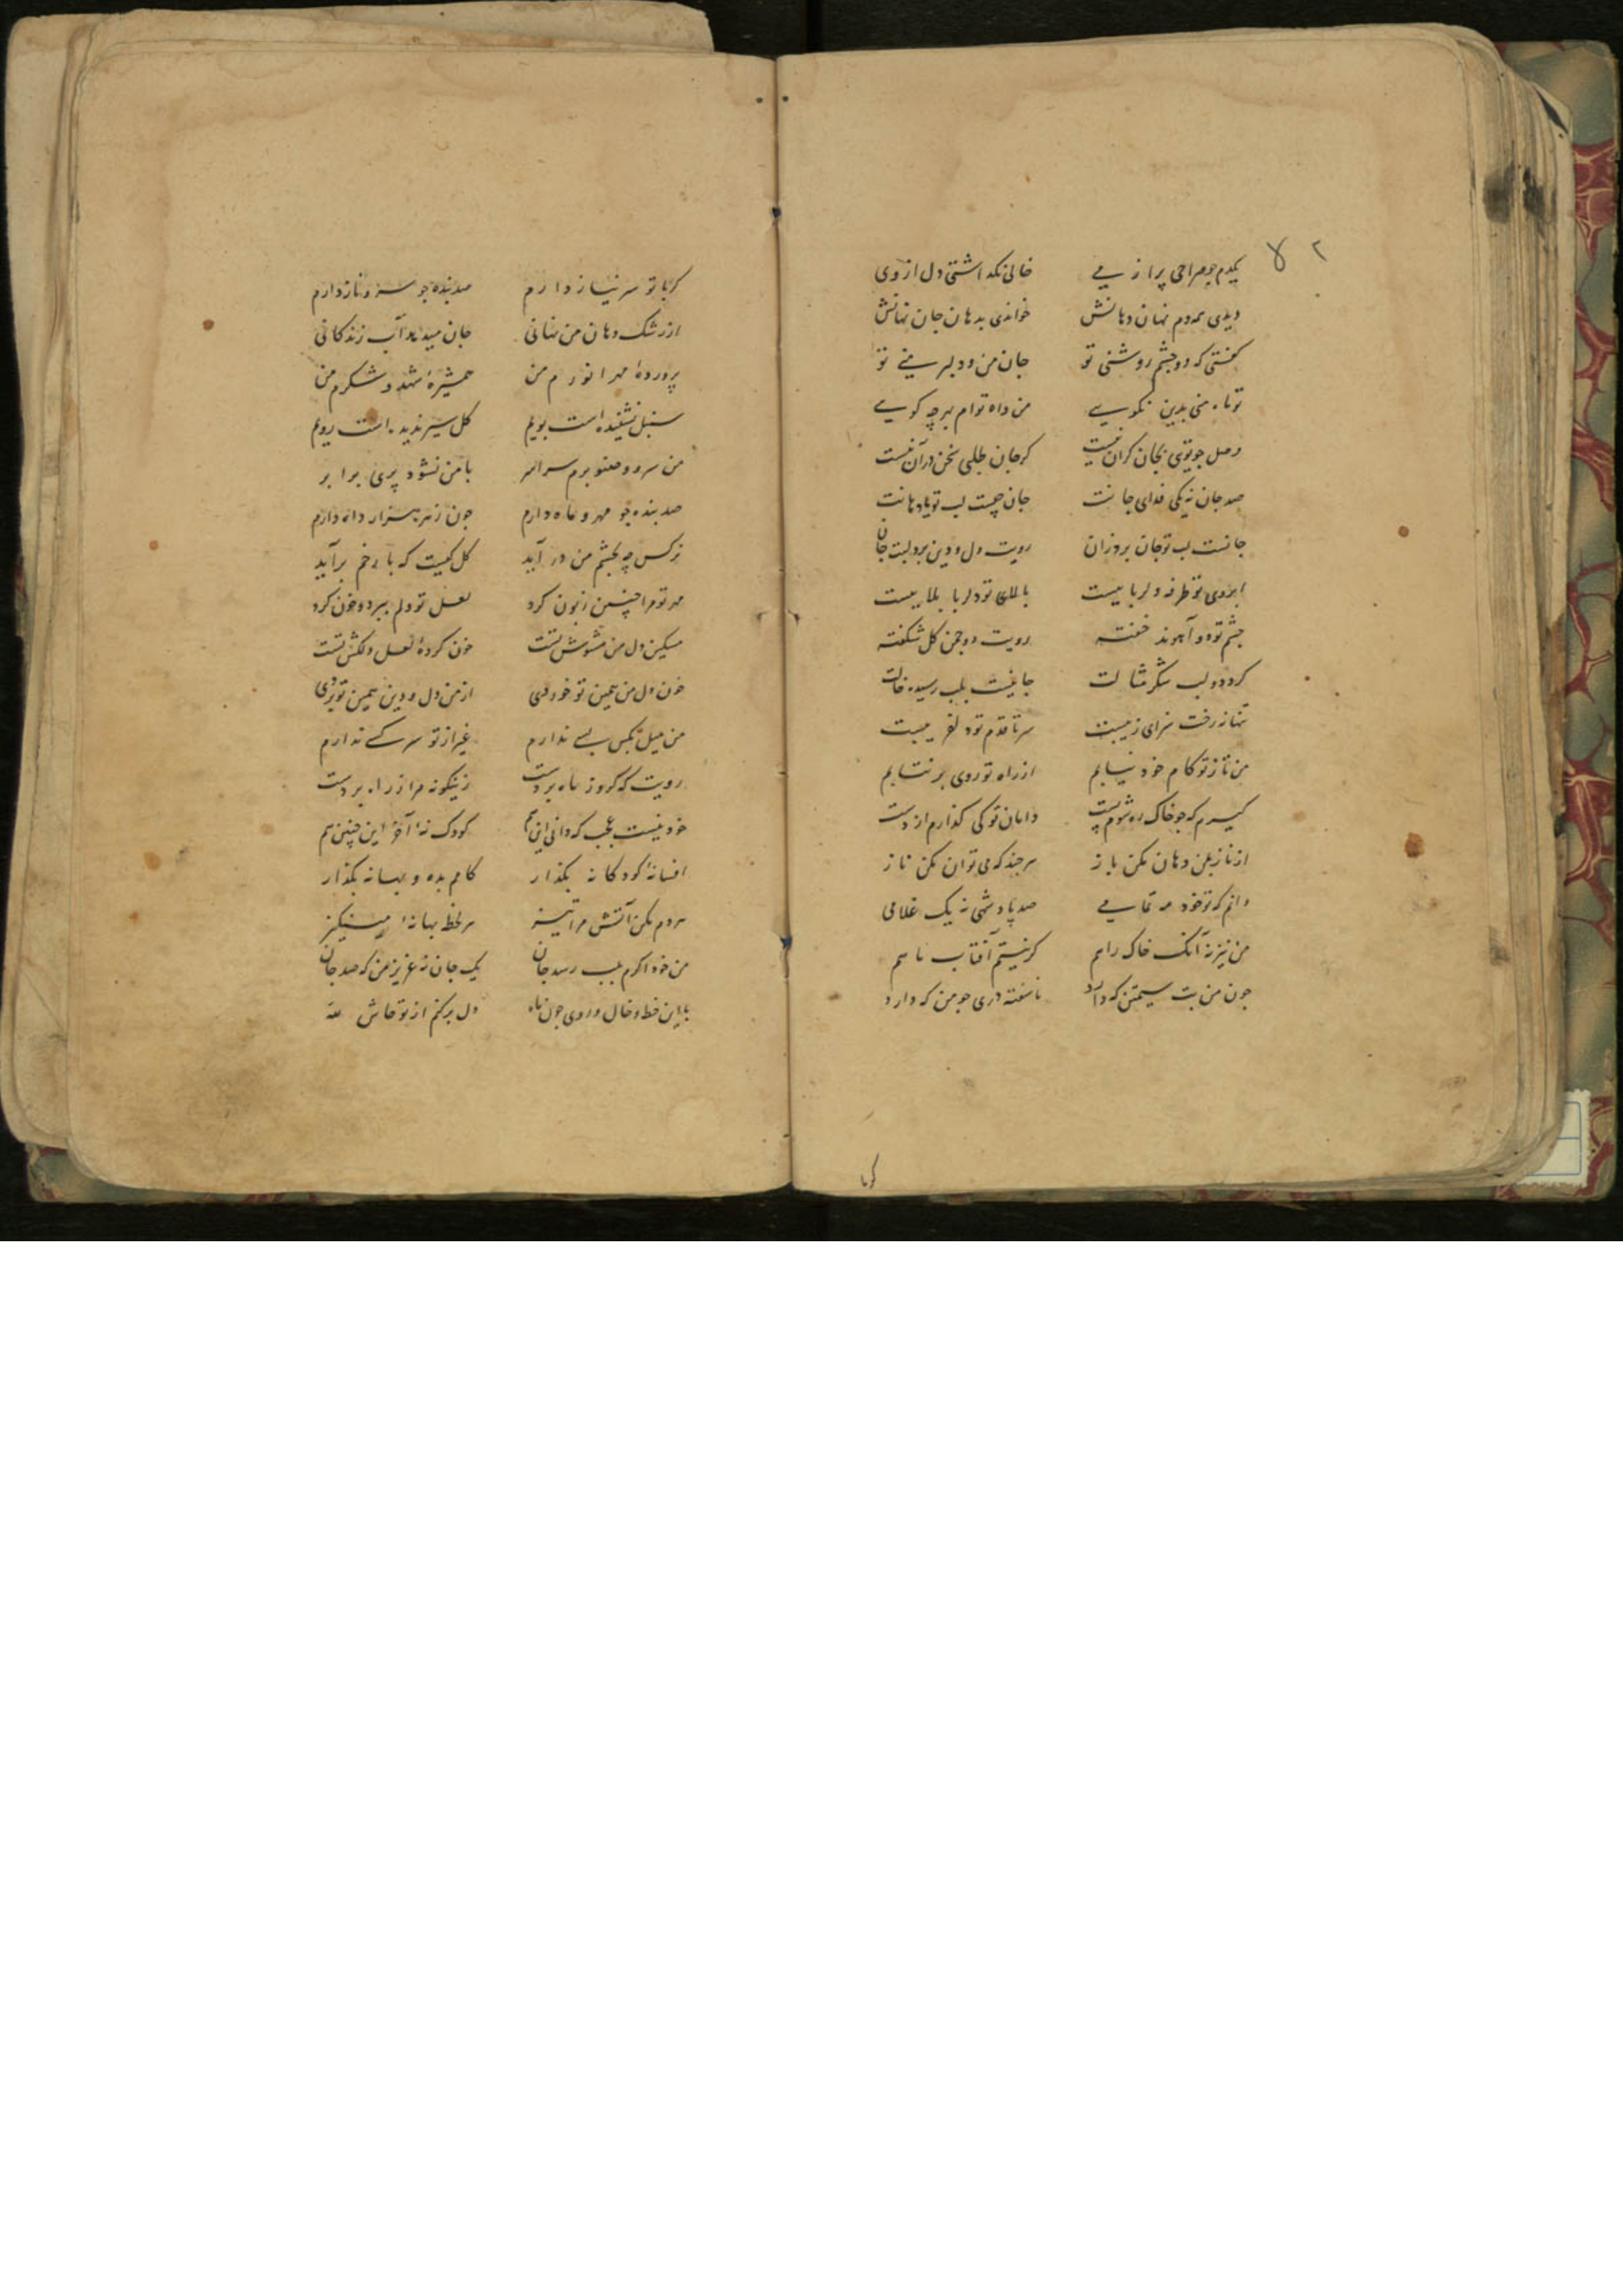 ۲ لا
یکدم چو صراحی پر از می خالی نکداشتی دل از وی
دیدی همه دم نهان دهانش خواندی بدهان جان نهانش
کفتی که دو چشم روشنی تو جان من و دلبر منی تو
تو ماه منی بدین نکویی من داه توام بهرچه کویی
وصل چو تویی بجان کران نیست کر جان طلبی سخن در آن نیست
صد جان نه یکی فدای جانت جان چیست لب تو یا دهانت
جانست لب تو جان بروزان رویت دل و دین برد لبت جان
ابروی تو طرفه دلرباییست بالای تو دلربا بلاییست
چشم تو دو آهوند خفته رویت دو چمن کل شکفته
کرد دو لب شکر مثالت جانیست بلب رسیده خالت
تنها نه رخت سزای زیبیت سر تا قدم تو دلفریبیت
من تا ز تو کام خود نیابم از راه تو روی بر نتابم
کیرم که چو خاک ره شوم پست دامان تو کی کذارم از دست
از ناز بمن دهان مکن باز هرچند که می توان مکن ناز
دانم که تو خود مه تمامی صد پادشهی نه یک غلامی
من نیز نه آنک خاک راهم کر نیستم آفتاب ماهم
چون من بت سیمتن که دارد ناسفته دری چو من که دارد
کر با
کر با تو سر نیاز دارم صد بنده چو سرو ناز دارم
از رشک دهان من نهانی جان میدهد آب زندکانی
پروردهٔ مهر انورم من همشیرهٔ شهد و شکرم من
سنبل نشنیده است بویم کل سیر ندیده است رویم
من سرو و صنوبرم سراسر با من نشود پری برابر
صد بنده چو مهر و ماه دارم چون زهره هزار داه دارم
نرکس چه بچشم من در آید کل کیست که با رخم برآید
مهر تو مرا چنین زبون کرد لعل تو دلم ببرد و خون کرد
مسکین دل من مشوش تست خون کردهٔ لعل دلکش تست
خون دل من همین تو خوردی از من دل و دین همین تو بردی
من میل بکس بسی ندارم غیر از تو سر کسی ندارم
رویت که کرو ز ماه بردست زینکونه مرا ز راه بردست
خود نیست عجب که دانی این هم کودک نهٔ آخر این چنین هم
افسانهٔ کودکانه بکذار کامم بده و بهانه بکذار
هر دم مکن آتش مرا تیز هر لحظه بهانهٔ مینکیز
من خود اکرم بلب رسد جان یک جان نه عزیز من که صد جان
با این خط و خال و روی چون ماه دل برکنم از تو حاش لله